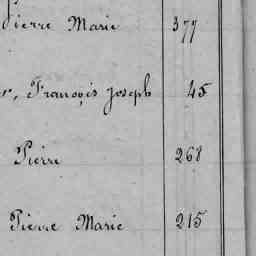 Pierre Marie 377
, François Joseph 45
Pierre 268
Pierre Marie 215